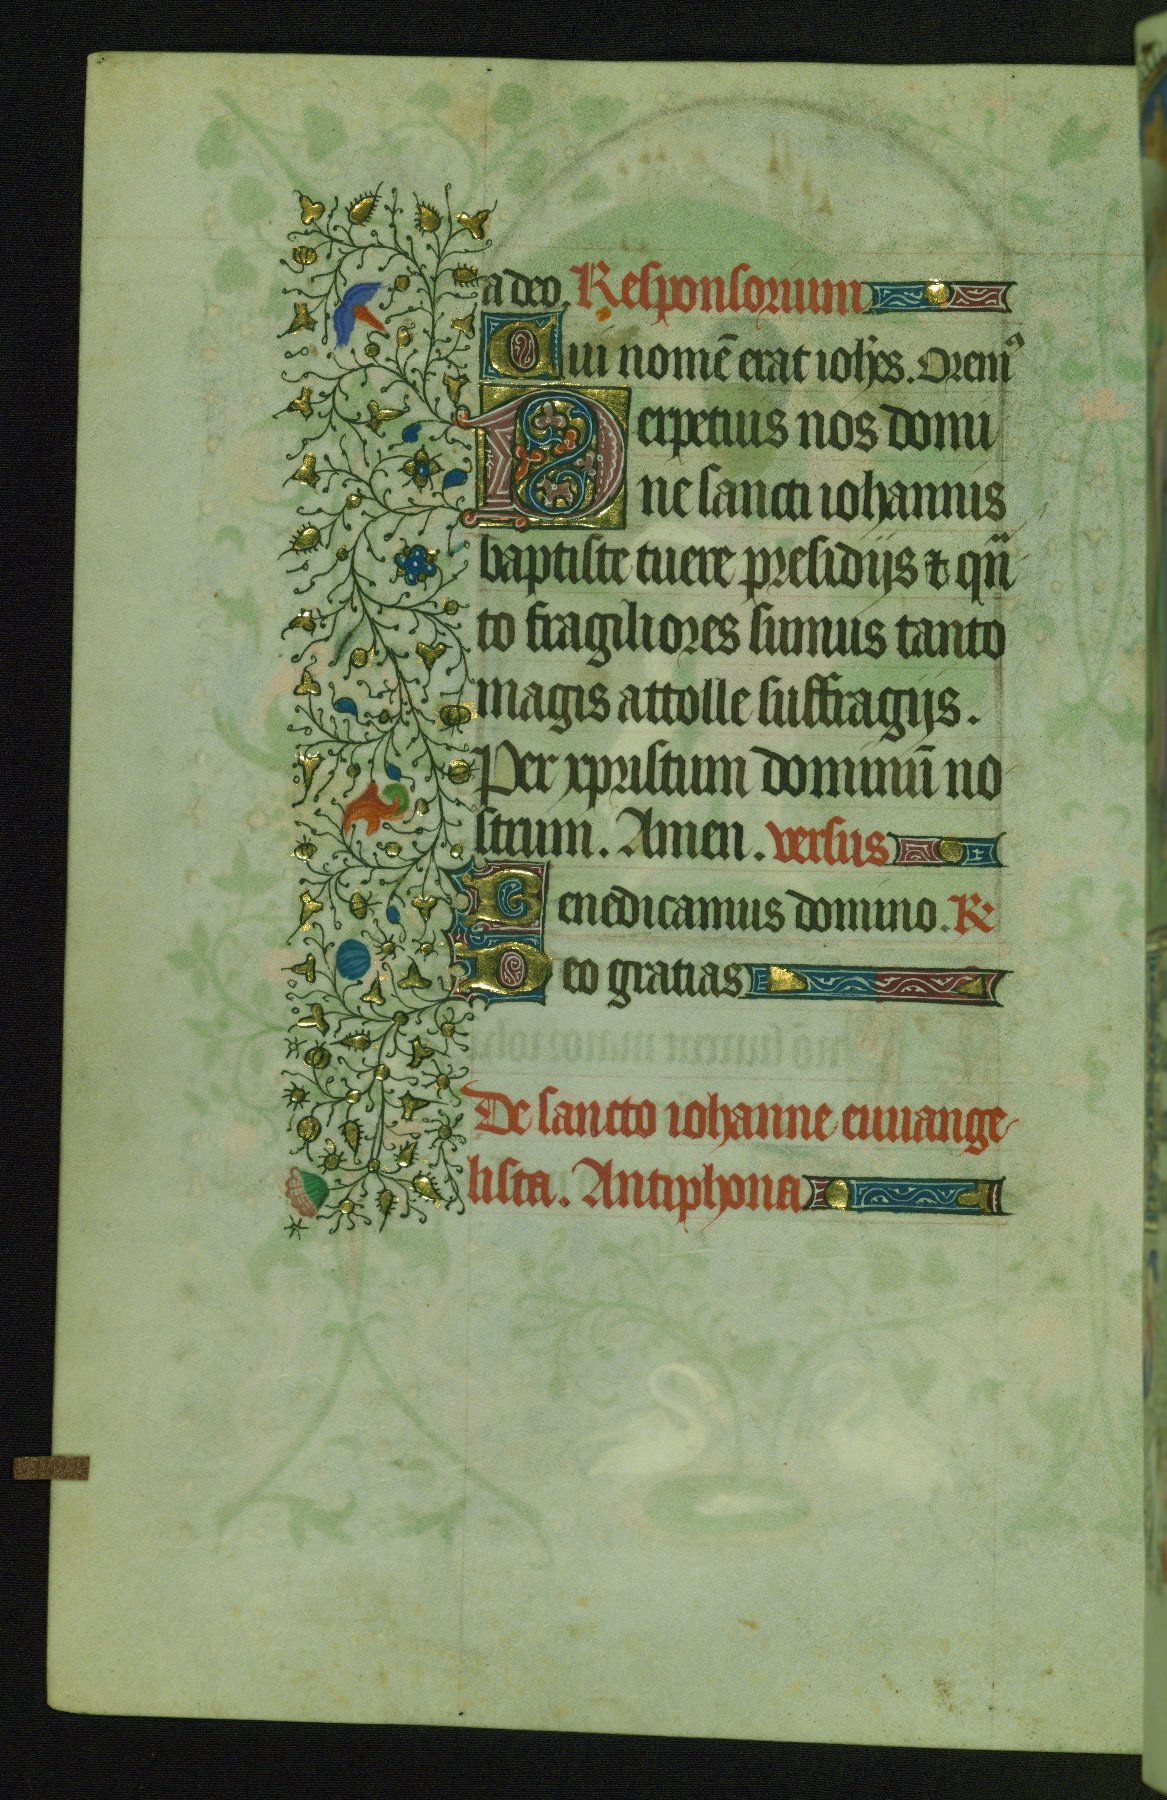 a deo. Responsorium
Cui nomē erat ioh̄es. Orem⁹
Perpetuis nos domi
ne sancti iohannis
baptiste tuere presidijs ⁊ quā
to fragiliores sumus tanto
magis attolle suffragijs.
Per xpristum dominū no
strum. Amen. versus
Benedicamus domino. R
Deo gratias
De sancto iohanne euuange
lista. Antiphona